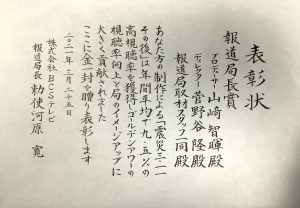 表彰状
報道局長賞
プロデューサー 山崎智暉殿
ディレクター 菅野谷傷殿
報道局取材スタッフ一同殿
あなた方の制作による「震災三・一一
その後」は年間平均十九・五％の
高視聴率を獲得しゴールデンアワーの
視聴率向上と局のイメージアップに
大きく貢献されました
ここに金一封を贈り表彰します
二〇二一年三月二十五日
株式会社BCSテレビ
報道局長 勅使河原 寛